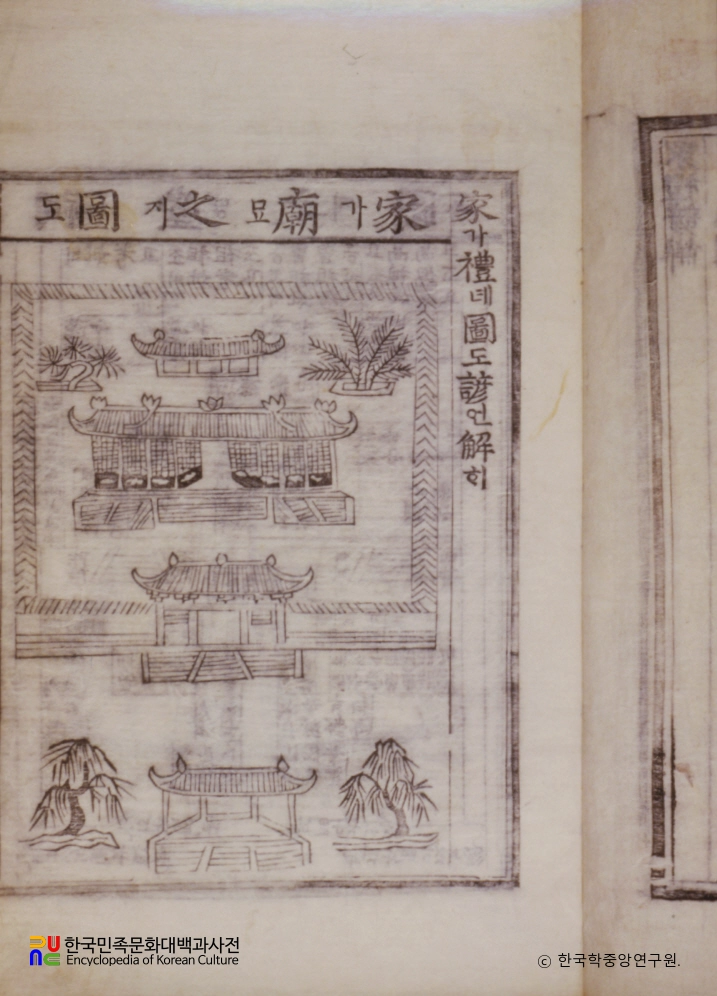 家가禮네圖도諺언解ᄒᆡ
家가廟묘之지圖도
한국민족문화대백과사전
Encyclopedia of Korean Culture
© 한국학중앙연구원.